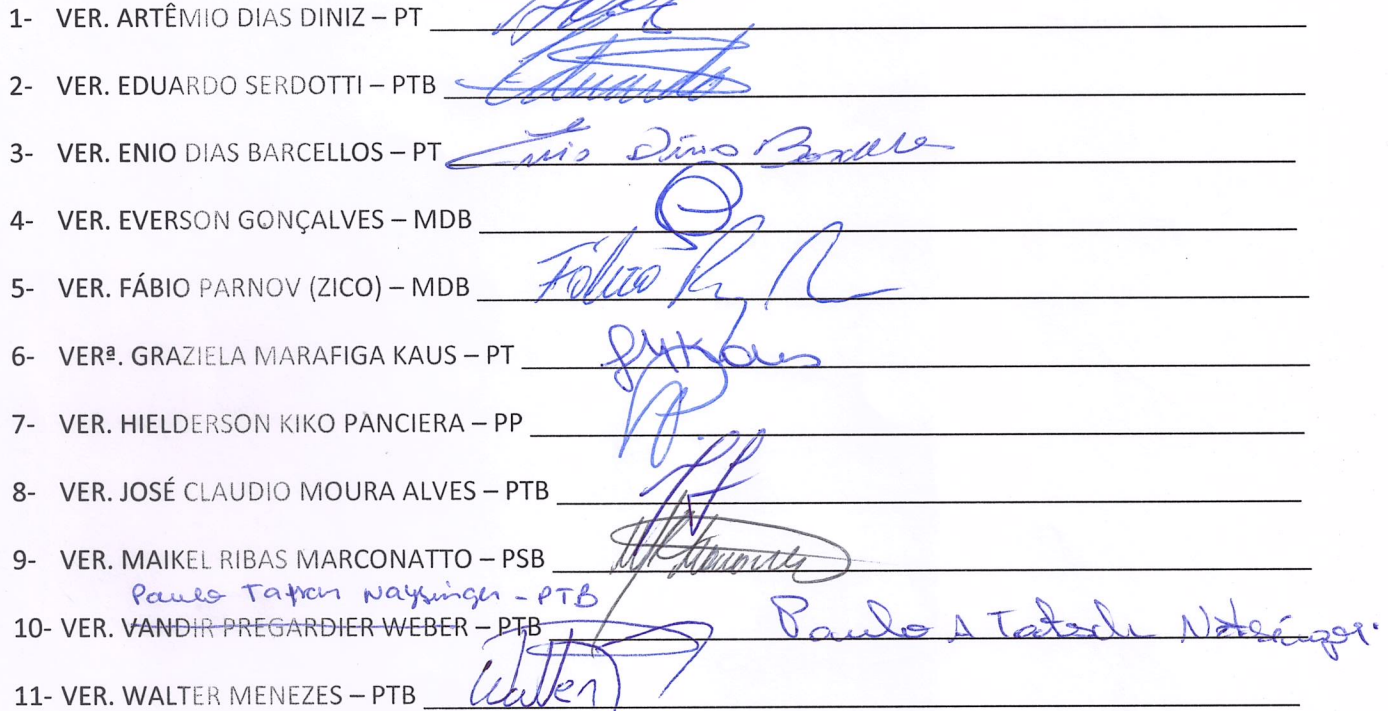 1- VER. ARTÊMIO DIAS DINIZ – PT
2- VER. EDUARDO SERDOTTI – PTB Eduardo
3- VER. ENIO DIAS BARCELLOS – PT Enio Dias Barcellos
4- VER. EVERSON GONÇALVES – MDB
5- VER. FÁBIO PARNOV (ZICO) – MDB Fábio
6- VERª. GRAZIELA MARAFIGA KAUS – PT GMKaus
7- VER. HIELDERSON KIKO PANCIERA – PP
8- VER. JOSÉ CLAUDIO MOURA ALVES – PTB
9- VER. MAIKEL RIBAS MARCONATTO – PSB
Paulo - PTB
10- VER. VANDIR PREGARDIER WEBER – PTB Paulo A Tatsch
11- VER. WALTER MENEZES – PTB Walter